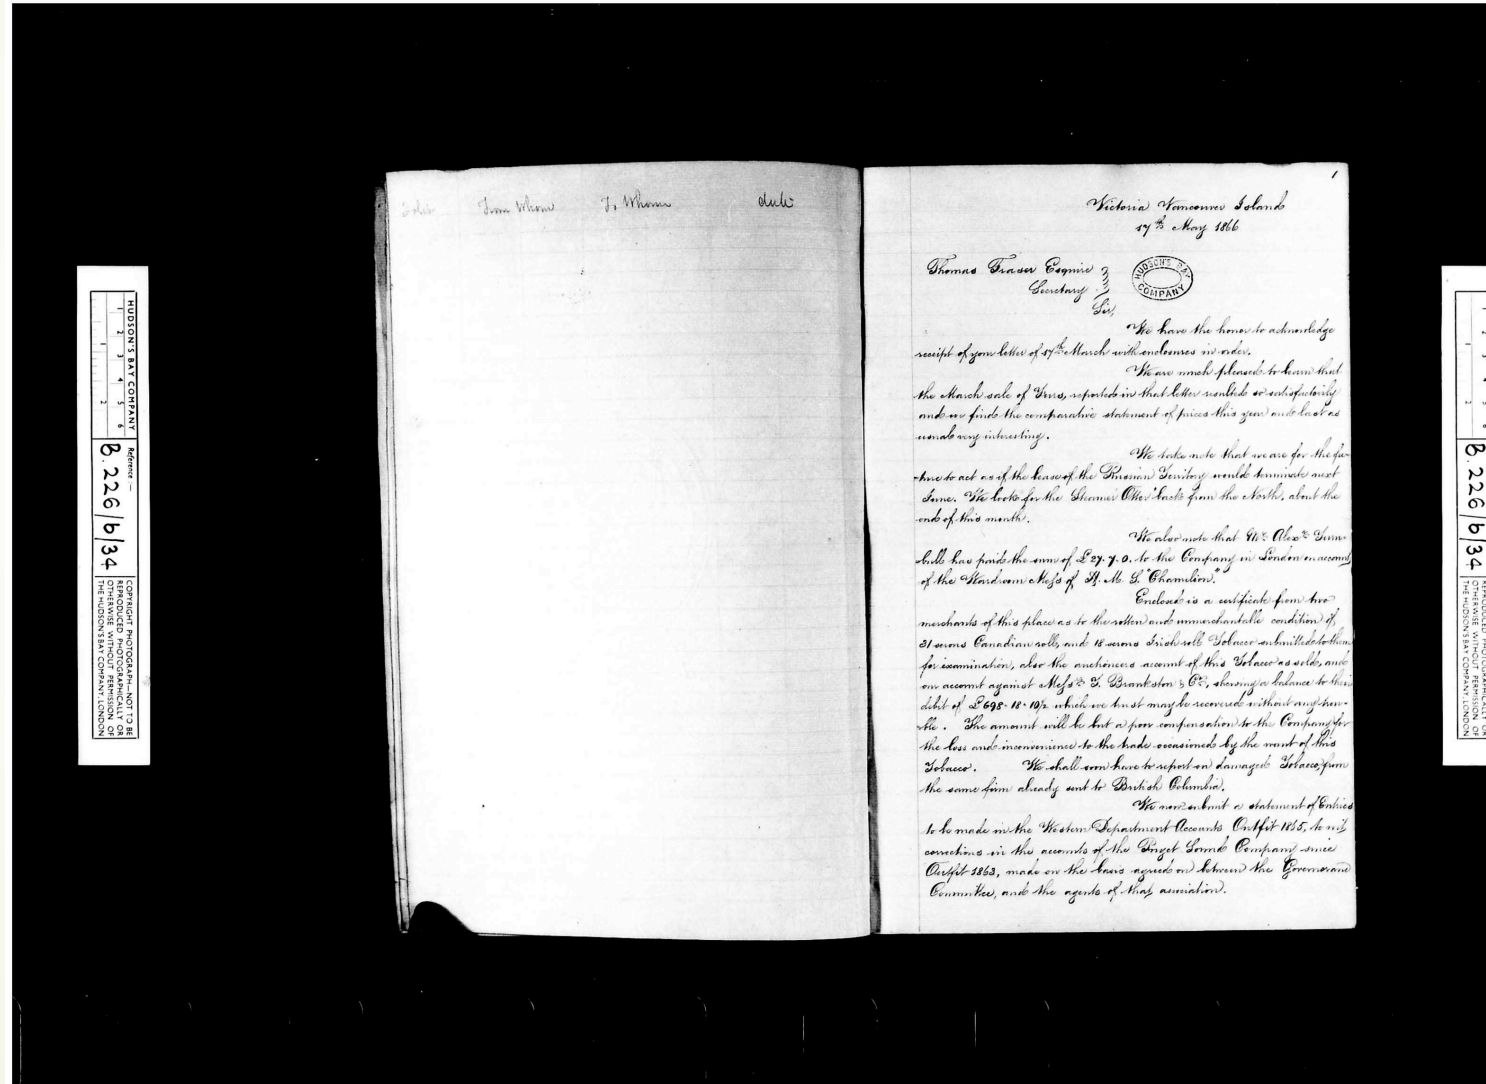 HUDSON'S BAY COMPANY
1 2 3 4 5 6
1 2
Reference:—
B.226/b/34
COPYRIGHT PHOTOGRAPH—NOT TO BE
REPRODUCED PHOTOGRAPHICALLY OR
OTHERWISE WITHOUT PERMISSION OF
THE HUDSON'S BAY COMPANY, LONDON
Folio From Whom To Whom date
1
Victoria Vancouver Island
17th May 1866
Thomas Fraser Esquire
Secretary
HUDSON'S BAY COMPANY
Sir,
We have the honor to acknowledge
receipt of your letter of 17th March with enclosures in order.
We are much pleased to learn that
the March sale of Furs, reported in that letter resulted so satisfactorily
and we find the comparative statement of prices this year and last as
usual very interesting.
We take note that we are for the fu-
-ture to act as if the lease of the Russian Territory would terminate next
June. We look for the Steamer "Otter" back from the North, about the
end of this month.
We also note that Mr. Alexr. Turn-
bull has paid the sum of £27.7.0. to the Company in London on account
of the Wardroom Mess of H. M. S. "Chamelion."
Enclosed is a certificate from two
merchants of this place as to the rotten and unmerchantable condition of
31 serons Canadian roll, and 18 serons Irish roll Tobacco submitted to them
for examination, also the auctioneers account of this Tobacco as sold, and
our account against Messrs. T. Brankston & Co., shewing a balance to their
debit of £698-18-10½ which we trust may be recovered without any trou-
-ble. The amount will be but a poor compensation to the Company for
the loss and inconvenience to the trade occasioned by the want of this
Tobacco. We shall soon have to report on damaged Tobacco, from
the same firm already sent to British Columbia.
We now submit a statement of Entries
to be made in the Western Department Accounts Outfit 1865, to wit,
corrections in the accounts of the Puget Sound Company since
Outfit 1863, made on the basis agreed on between the Governor and
Committee, and the agents of that association.
B.226/b/34
REPRODUCED PHOTOGRAPHICALLY OR
OTHERWISE WITHOUT PERMISSION OF
THE HUDSON'S BAY COMPANY, LONDON